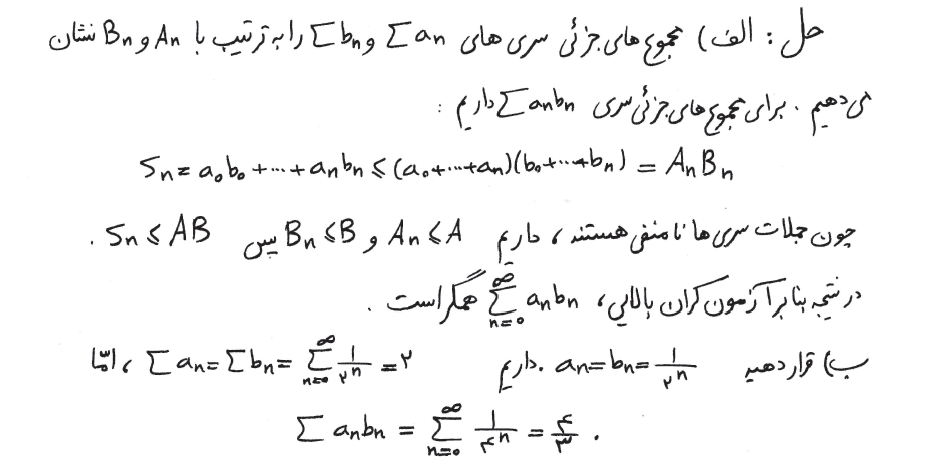 حل : الف) مجموع های جزئی سری های Σan و Σbn را به ترتیب با An و Bn نشان
می دهیم . برای مجموع های جزئی سری Σanbn داریم :
Sn = a₀b₀ + ... + anbn ⩽ (a₀+...+an)(b₀+...+bn) = AnBn
چون جملات سری ها نامنفی هستند ، داریم An ⩽ A و Bn ⩽ B پس Sn ⩽ AB .
در نتیجه بنا بر آزمون کران بالایی، ∞Σn=0 anbn همگراست .
ب) قرار دهید an=bn=1/۲ⁿ . داریم Σan=Σbn= ∞Σn=0 1/۲ⁿ =۲ ، امّا
Σanbn = ∞Σn=0 1/۴ⁿ = ۴/۳ .